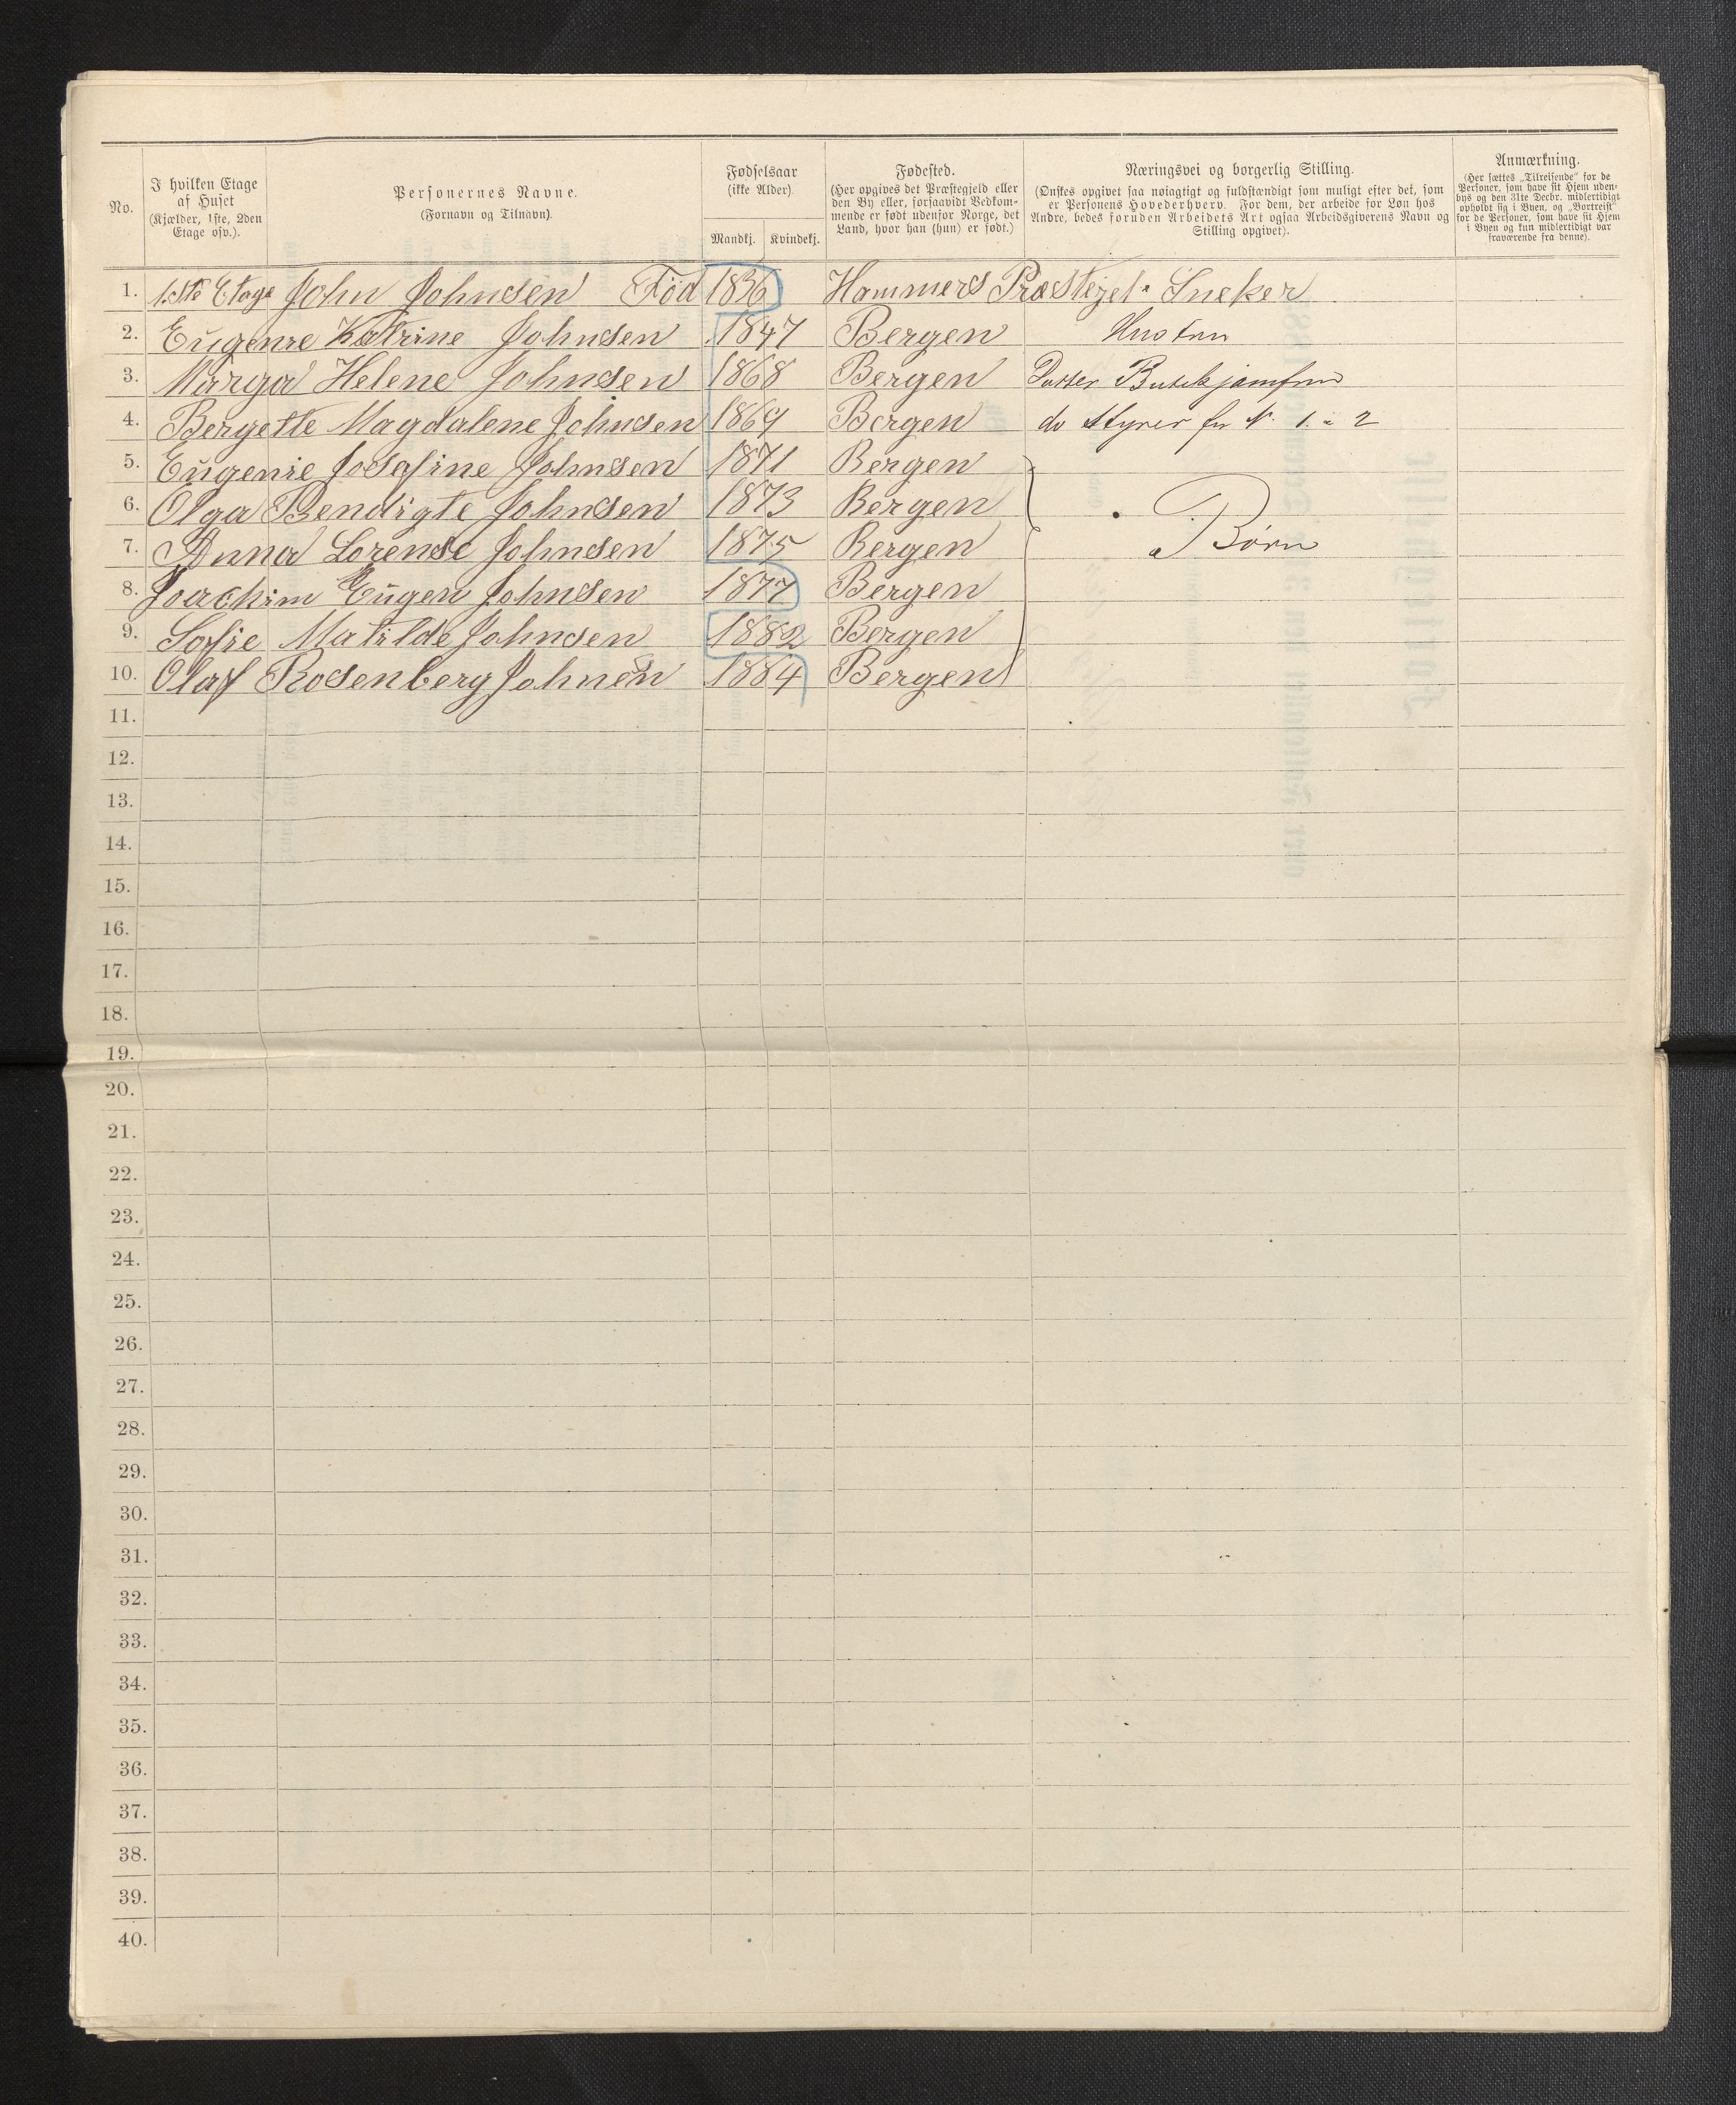 No.
I hvilken Etage
af Huset
(Kjælder, 1ste, 2den
Etage osv.).
Personernes Navne.
(Fornavn og Tilnavn).
Fødselsaar
(ikke Alder)
Mandkj.
Kvindekj.
Fødested.
(Her opgives det Præstegjeld eller
den By eller, forsaavidt Vedkom-
mende er født udenfor Norge, det
Land, hvor han (hun) er født.)
Næringsvei og borgerlig Stilling.
(Ønskes opgivet saa nøiagtigt og fuldstændigt som muligt efter det, som
er Personens Hovederhverv. For dem, der arbeide for Løn hos
Andre, bedes foruden Arbeidets Art ogsaa Arbeidsgiverens Navn og
Stilling opgivet).
Anmærkning.
(Her sættes „Tilreisende" for de
Personer, som have sit Hjem uden-
bys og den 31te Decbr. midlertidigt
opholdt sig i Byen, og „Bortreist"
for de Personer, som have sit Hjem
i Byen og kun midlertidigt var
fraværende fra denne).
1. 1.Ste Etage John Johnsen Föd 1836 Hammers Præstegel. Sneker
2. Eugenie Katrine Johnsen 1847 Bergen Hustru
3. Marga Helene Johnsen 1868 Bergen Datter Butikjomfru
4. Bergette Magdalene Johnsen 1869 Bergen do Styrer for N. 1. - 2
5. Eugenie Josefine Johnsen 1871 Bergen
6. Olga Bendigte Johnsen 1873 Bergen
7. Anna Lorense Johnsen 1875 Bergen Børn
8. Joachim Eugen Johnsen 1877 Bergen
9. Sofie Matilde Johnsen 1882 Bergen
10. Olaf Rosenberg Johnsen 1884 Bergen
11.
12.
13.
14.
15.
16.
17.
18.
19.
20.
21.
22.
23.
24.
25.
26.
27.
28.
29.
30.
31.
32.
33.
34.
35.
36.
37.
38.
39.
40.